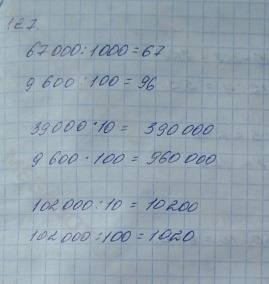 127.
67000:1000=67
9600:100=96
39000·10=390000
9600·100=960000
102000:10=10200
102000:100=1020